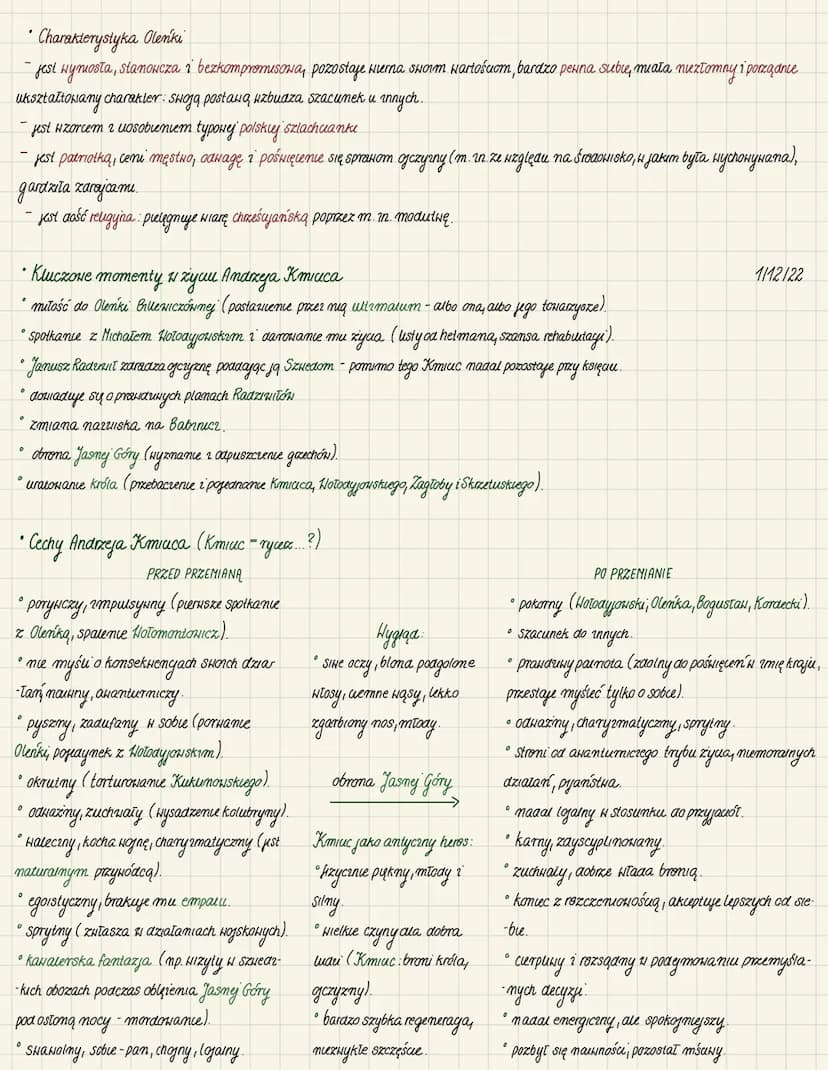 • Charakterystyka Oleńki
- jest wyniosła, stanowcza i bezkompromisowa, pozostaje wierna swoim wartościom, bardzo pewna siebie, miała niezłomny i porządnie
ukształtowany charakter: swoją postawą wzbudza szacunek u innych.
- jest wzorcem i uosobieniem typowej polskiej szlachcianki
- jest patriotką, ceni męstwo, odwagę i poświęcenie się sprawom ojczyzny (m.in. ze względu na środowisko, w jakim była wychowywana),
gardziła zdrajcami.
- jest dość religijna: pielęgnuje wiarę chrześcijańską poprzez m.in. modlitwę.
• Kluczowe momenty w życiu Andrzeja Kmicica 1/12/22
° miłość do Oleńki Billewiczównej (postawienie przez nią ultimatum - albo ona, albo jego towarzysze).
° spotkanie z Michałem Wołodyjowskim i darowanie mu życia (listy od hetmana, szansa rehabilitacji).
° Janusz Radziwił zdradza ojczyznę poddając ją Szwedom - pomimo tego Kmicic nadal pozostaje przy księciu.
° dowiaduje się o prawdziwych planach Radziwiłów
° zmiana nazwiska na Babinicz.
° obrona Jasnej Góry (wyznanie i odpuszczenie grzechów).
° uratowanie króla (przebaczenie i pojednanie Kmicica, Wołodyjowskiego, Zagłoby i Skrzetuskiego).
• Cechy Andrzeja Kmicica (Kmicic = rycerz...?)
PRZED PRZEMIANĄ
° porywczy, impulsywny (pierwsze spotkanie
z Oleńką, spalenie Wołomontowicz).
° nie myśli o konsekwencjach swoich dzia-
-łań, naiwny, awanturniczy.
° pyszny, zadufany w sobie (porwanie
Oleńki, pojedynek z Wołodyjowskim).
° okrutny (torturowanie Kuklinowskiego).
° odważny, zuchwały (wysadzenie kolubryny).
° waleczny, kocha wojnę, charyzmatyczny (jest
naturalnym przywódcą).
° egoistyczny, brakuje mu empatii.
° sprytny (zwłaszcza w działaniach wojskowych).
° kawalerska fantazja (np. wizyty w szwedz-
-kich obozach podczas oblężenia Jasnej Góry
pod osłoną nocy - mordowanie).
° swawolny, sobie-pan, chojny, lojalny.
Wygląd:
° siwe oczy, blond podgolone
włosy, ciemne wąsy, lekko
zgarbiony nos, młody.
obrona Jasnej Góry
Kmicic jako antyczny heros:
° fizycznie piękny, młody i
silny.
° wielkie czyny dla dobra
ludzi (Kmicic: broni króla,
ojczyzny).
° bardzo szybka regeneracja,
niezwykłe szczęście.
PO PRZEMIANIE
° pokorny (Wołodyjowski, Oleńka, Bogusław, Kordecki).
° szacunek do innych.
° prawdziwy patriota (zdolny do poświęceń w imię kraju,
przestaje myśleć tylko o sobie).
° odważny, charyzmatyczny, sprytny.
° stroni od awanturniczego trybu życia, niemoralnych
działań, pijaństwa.
° nadal lojalny w stosunku do przyjaciół.
° karny, zdyscyplinowany.
° zuchwały, dobrze włada bronią.
° koniec z roszczeniowością, akceptuje lepszych od sie-
-bie.
° cierpliwy i rozsądny w podejmowaniu przemyśla-
-nych decyzji.
° nadal energiczny, ale spokojniejszy.
° pozbył się naiwności, pozostał mściwy.